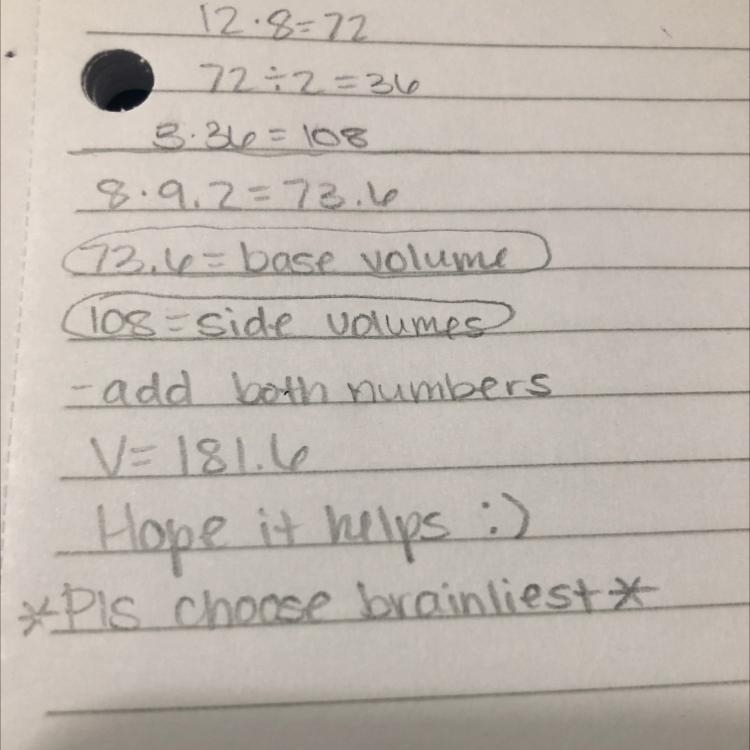 12·8=72
72÷2=36
3·36=108
8·9.2=73.6
73.6=base volume
108=side volumes
-add both numbers
V=181.6
Hope it helps :)
*Pls choose brainliest*